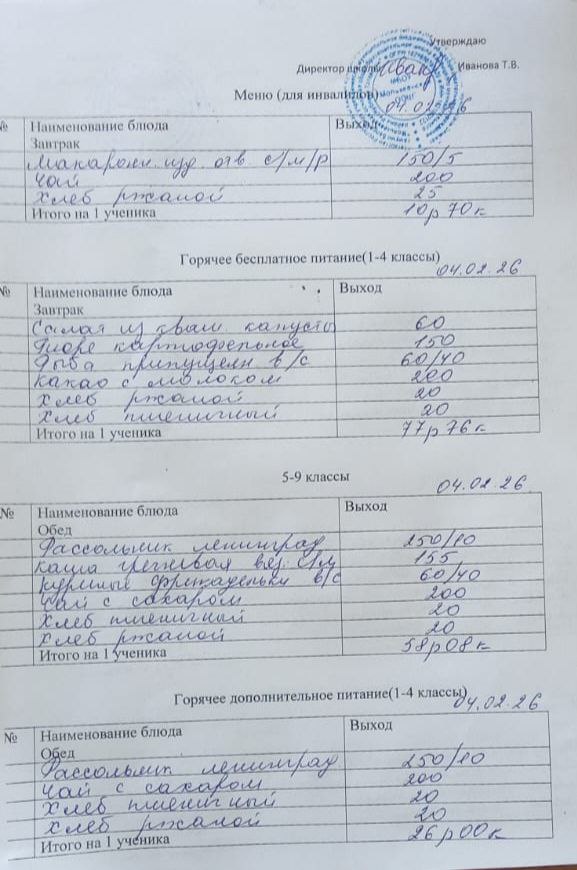 Утверждаю
Директор школы Иванова Т.В.
Меню (для инвалидов)
04.02.26
№ Наименование блюда Выход
Завтрак
Макарон. изд. отв. с/м/р 150/5
Чай 200
Хлеб ржаной 25
Итого на 1 ученика 10р 70к
Горячее бесплатное питание(1-4 классы)
04.02.26
№ Наименование блюда Выход
Завтрак
Салат из кваш. капусты 60
Пюре картофельное 150
Рыба припущенн в/с 60/40
Какао с молоком 200
Хлеб ржаной 20
Хлеб пшеничный 20
Итого на 1 ученика 77р 76к
5-9 классы
04.02.26
№ Наименование блюда Выход
Обед
Рассольник ленинград 250/10
Каша гречневая вяз. с/м 155
Куриные фрикадельки в/с 60/40
Чай с сахаром 200
Хлеб пшеничный 20
Хлеб ржаной 20
Итого на 1 ученика 58р08к
Горячее дополнительное питание(1-4 классы)
04.02.26
№ Наименование блюда Выход
Обед
Рассольник ленинград 250/10
Чай с сахаром 200
Хлеб пшеничный 20
Хлеб ржаной 20
Итого на 1 ученика 26р00к